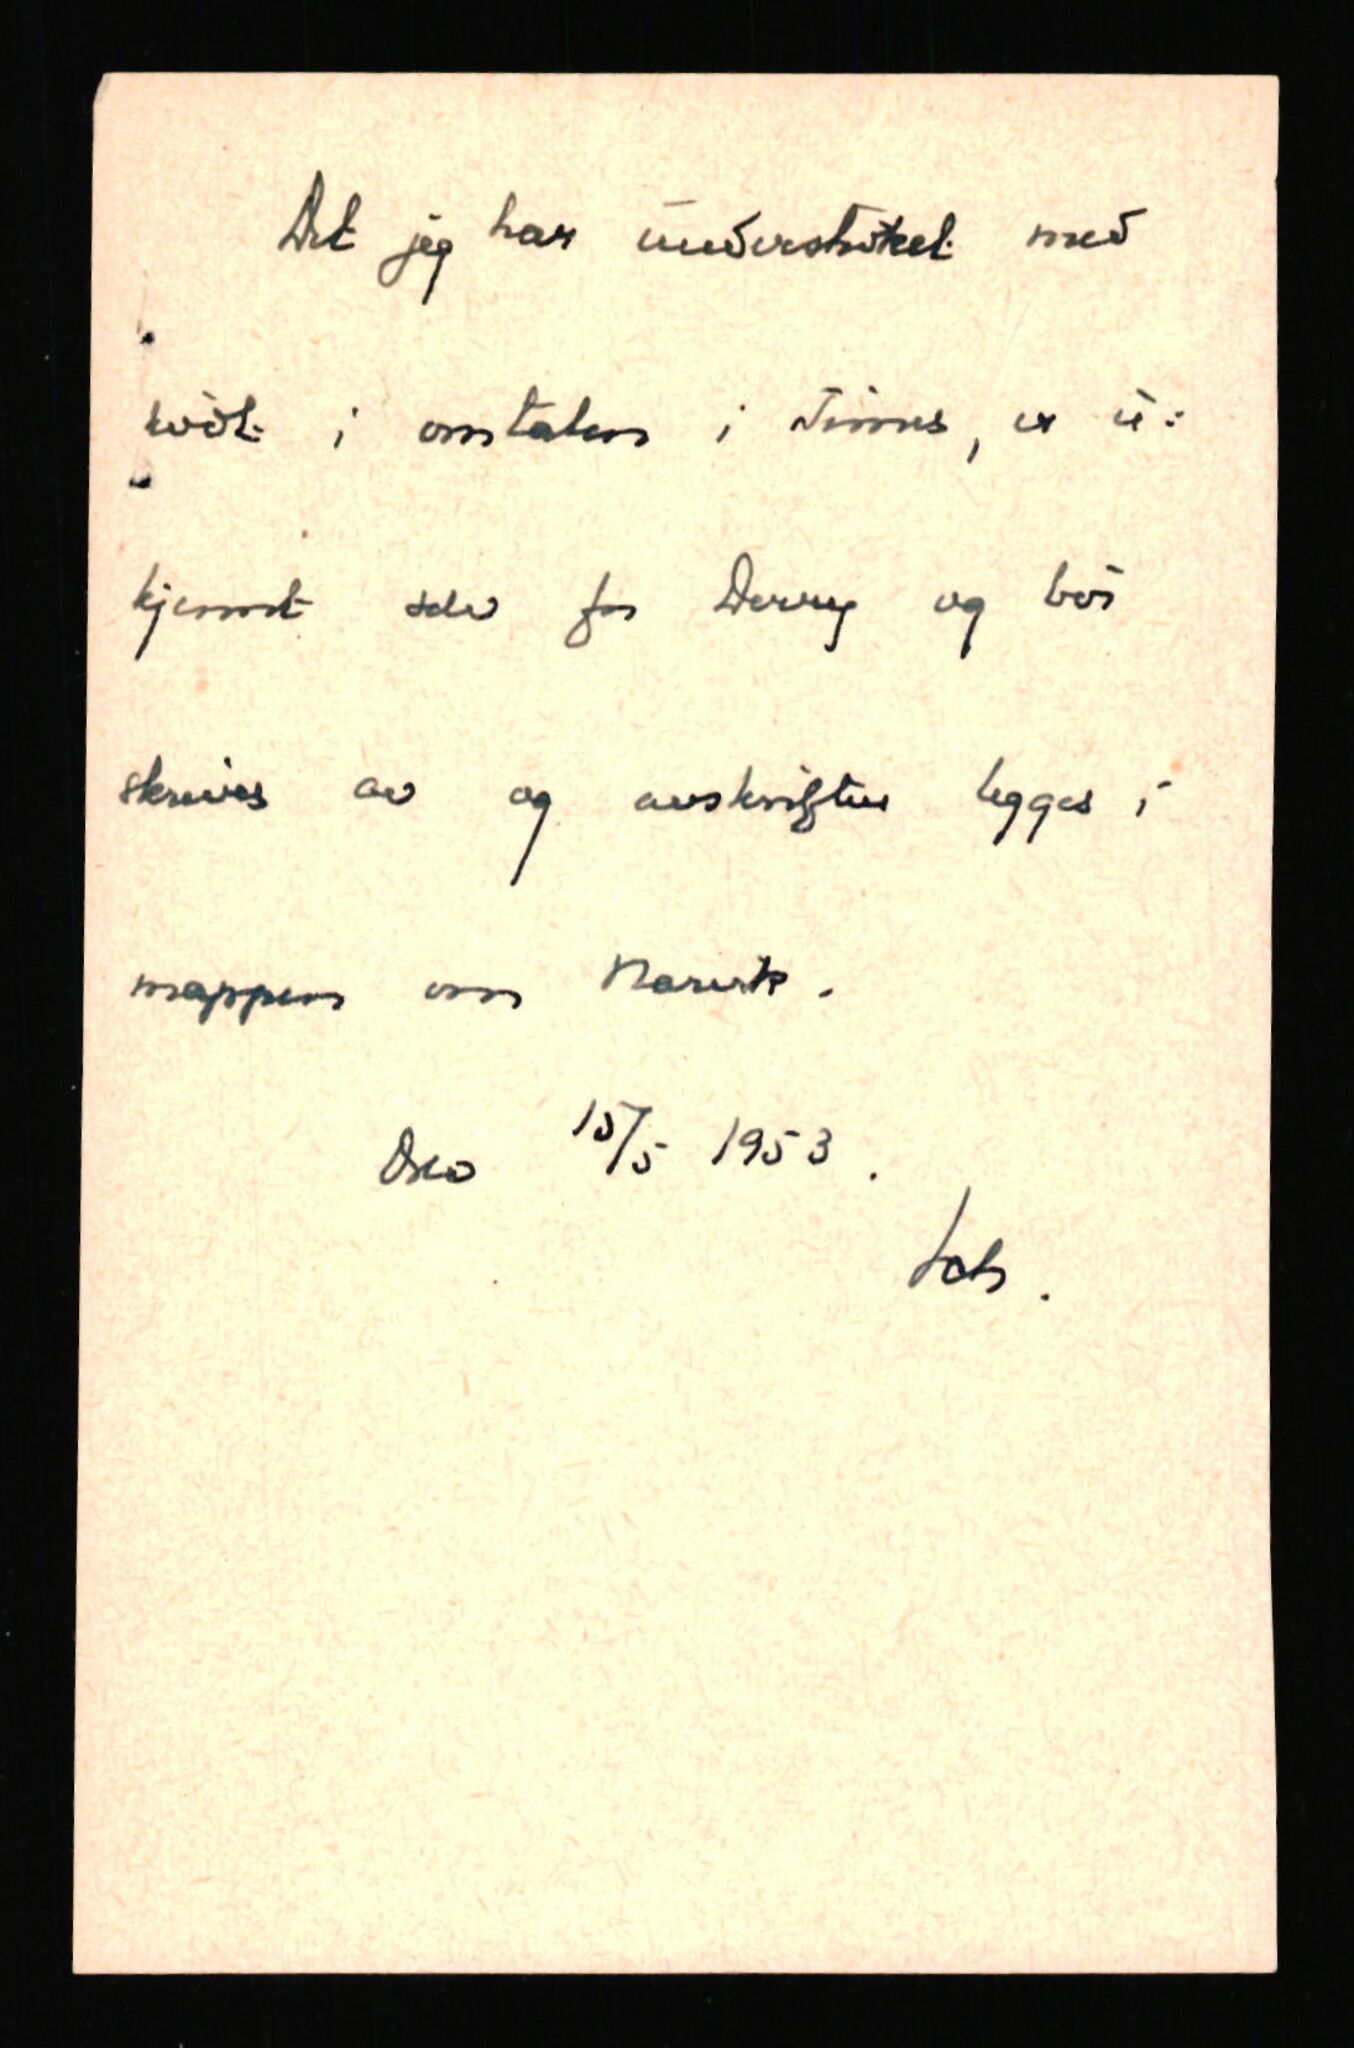 Det jeg har understreket med
rödt i omtalen i Times, er u=
kjennt selv for Derry og bör
skrives av og avskriften legges i
mappen om Narvik.
Oslo 15/5 1953.